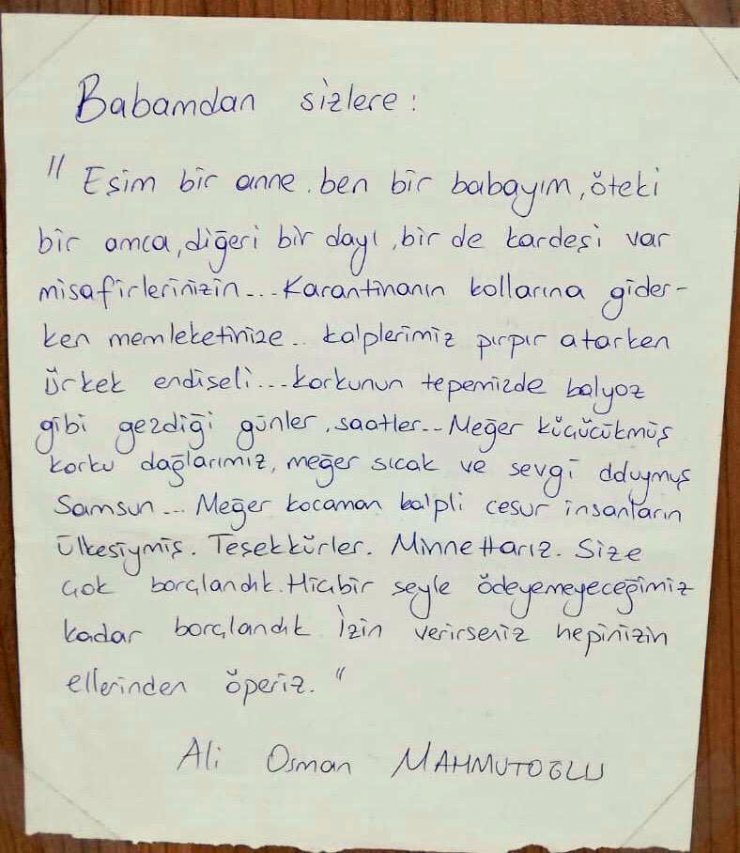 Babamdan sizlere:
" Eşim bir anne. ben bir babayım, öteki
bir amca, diğeri bir dayı, bir de kardeşi var
misafirlerinizin... Karantinanın kollarına gider-
ken memleketinize.. kalplerimiz pırpır atarken
ürkek endişeli... korkunun tepemizde balyoz
gibi gezdiği günler, saatler... Meğer küçücükmüş
korku dağlarımız, meğer sıcak ve sevgi dduymuş
Samsun... Meğer kocaman kalpli cesur insanların
ülkesiymiş. Teşekkürler. Minnettarız. Size
çok borçlandık. Hiçbir şeyle ödeyemeyeceğimiz
kadar borçlandık İzin verirseniz hepinizin
ellerinden öperiz. "
Ali Osman MAHMUTOĞLU